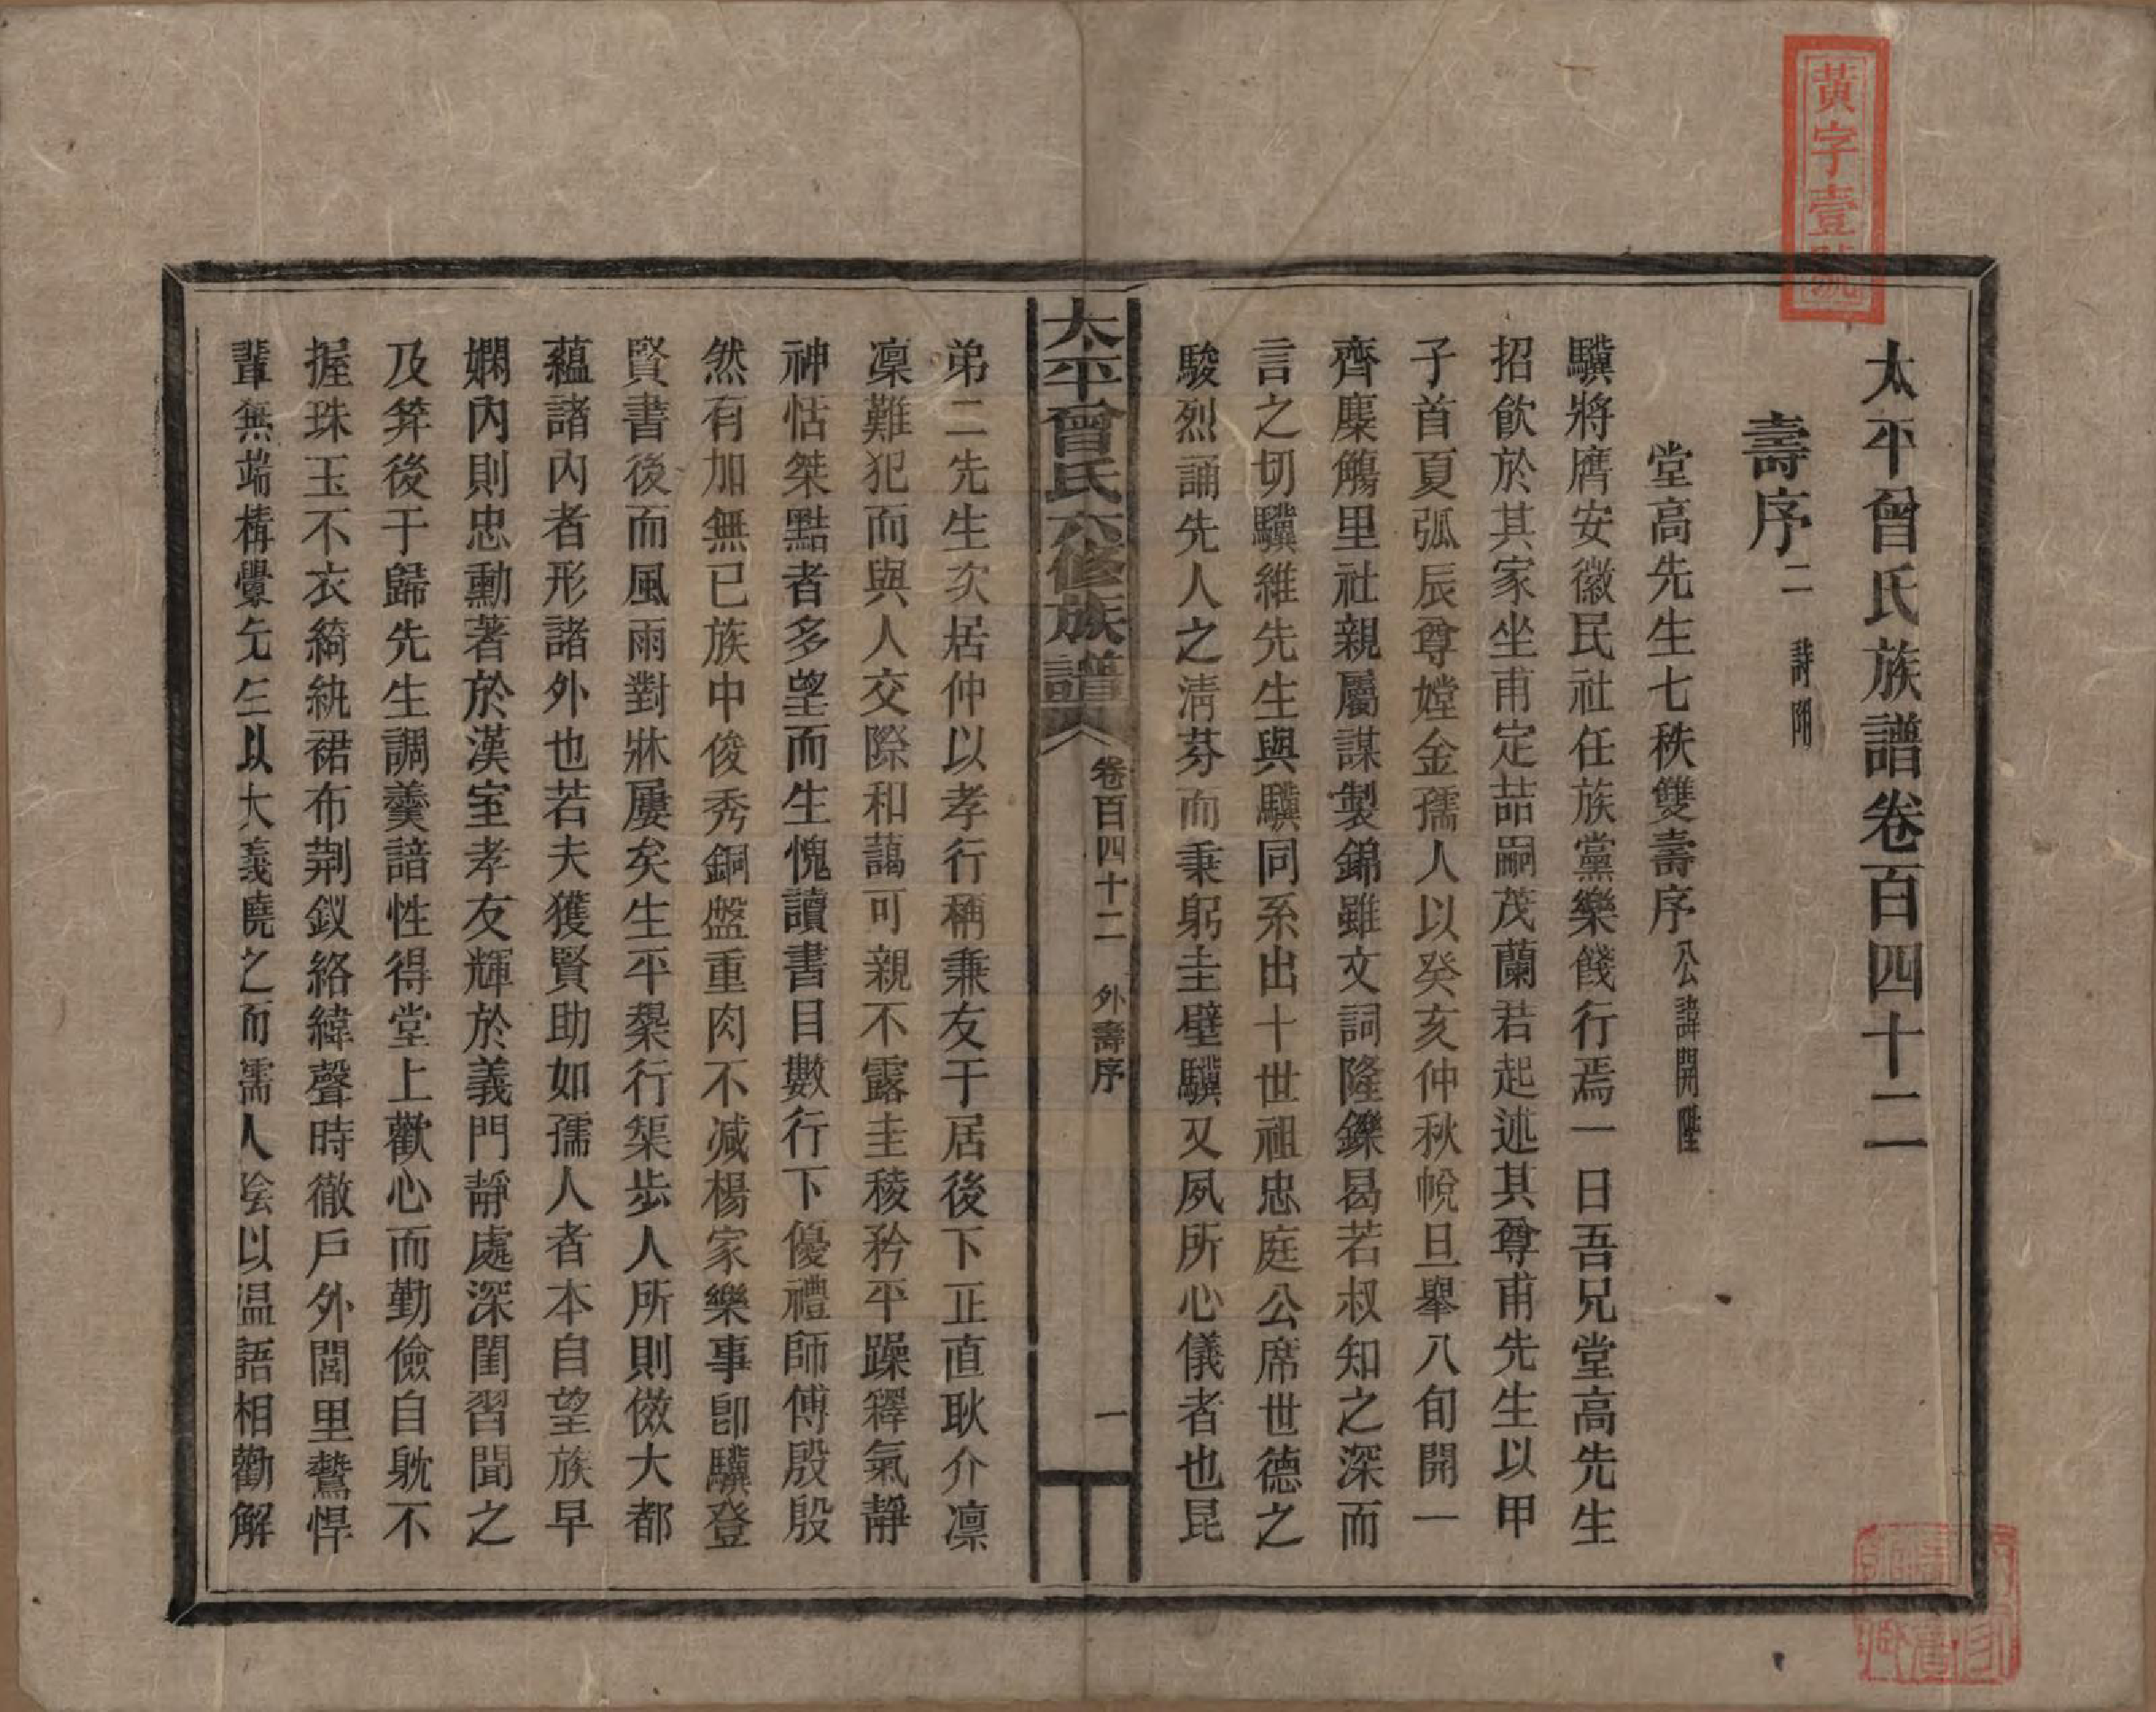 黃字壹號
太平曾氏族譜卷百四十二
壽序二 詩附
堂高先生七秩雙壽序 公諱開陞
驥將膺安徽民社任族黨樂餞行焉一日吾兄堂高先生
招飲於其家坐甫定喆嗣茂蘭君起述其尊甫先生以甲
子首夏弧辰尊嫜金孺人以癸亥仲秋帨旦舉八旬開一
齊麋觴里社親屬謀製錦雖文詞隆鑠曷若叔知之深而
言之切驥維先生與驥同系出十世祖忠庭公席世德之
駿烈誦先人之淸芬而秉躬圭璧驥又夙所心儀者也昆
太平曾氏六修族譜 卷百四十二 外壽序 一
弟二先生次居仲以孝行稱兼友于居後下正直耿介凛
凜難犯而與人交際和藹可親不露圭稜矜平躁釋氣靜
神恬桀黠者多望而生愧讀書目數行下優禮師傅殷殷
然有加無已族中俊秀銅盤重肉不减楊家樂事卽驥登
賢書後而風雨對牀屢矣生平榘行渠步人所則傚大都
蘊諸內者形諸外也若夫獲賢助如孺人者本自望族早
嫻內則忠勳著於漢室孝友輝於義門靜處深閨習聞之
及笄後于歸先生調羹諳性得堂上歡心而勤儉自躭不
握珠玉不衣綺紈裙布荆釵絡緯聲時徹戶外閭里鷙悍
輩無端構釁先生以大義曉之而孺人陰以温語相勸解